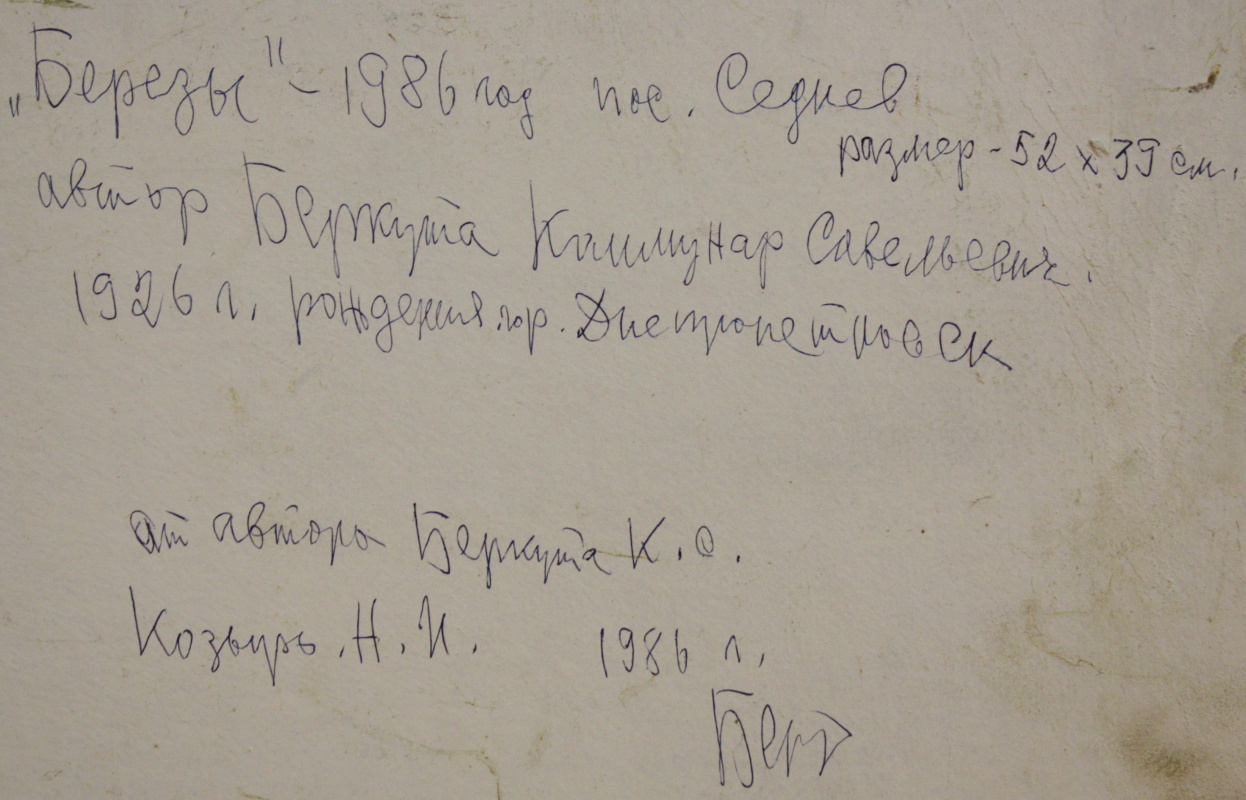 „Березы" - 1986 год пос. Седнев
размер - 52 х 39 см.
автор Беркута Коммунар Савельевич.
1926 г. рождения. гор. Днепропетровск
от автора Беркута К. С.
Козырь. Н. И. 1986 г.